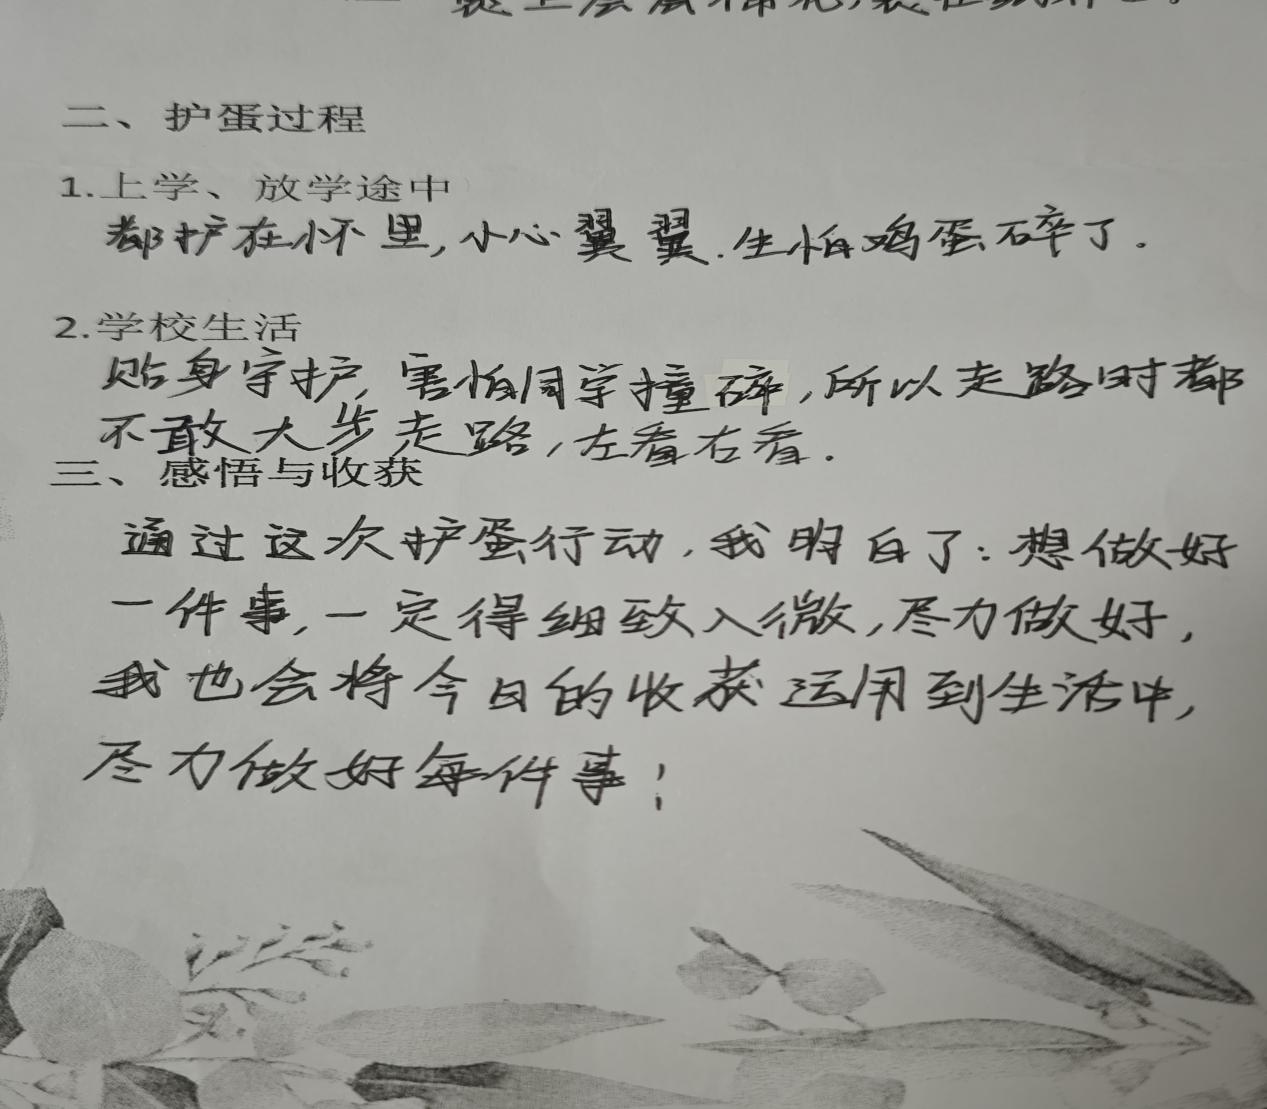 二、护蛋过程
1.上学、放学途中
都护在怀里,小心翼翼.生怕鸡蛋碎了.
2.学校生活
贴身守护,害怕同学撞碎,所以走路时都
不敢大步走路,左看右看.
三、感悟与收获
通过这次护蛋行动,我明白了:想做好
一件事,一定得细致入微,尽力做好,
我也会将今日的收获运用到生活中,
尽力做好每件事!